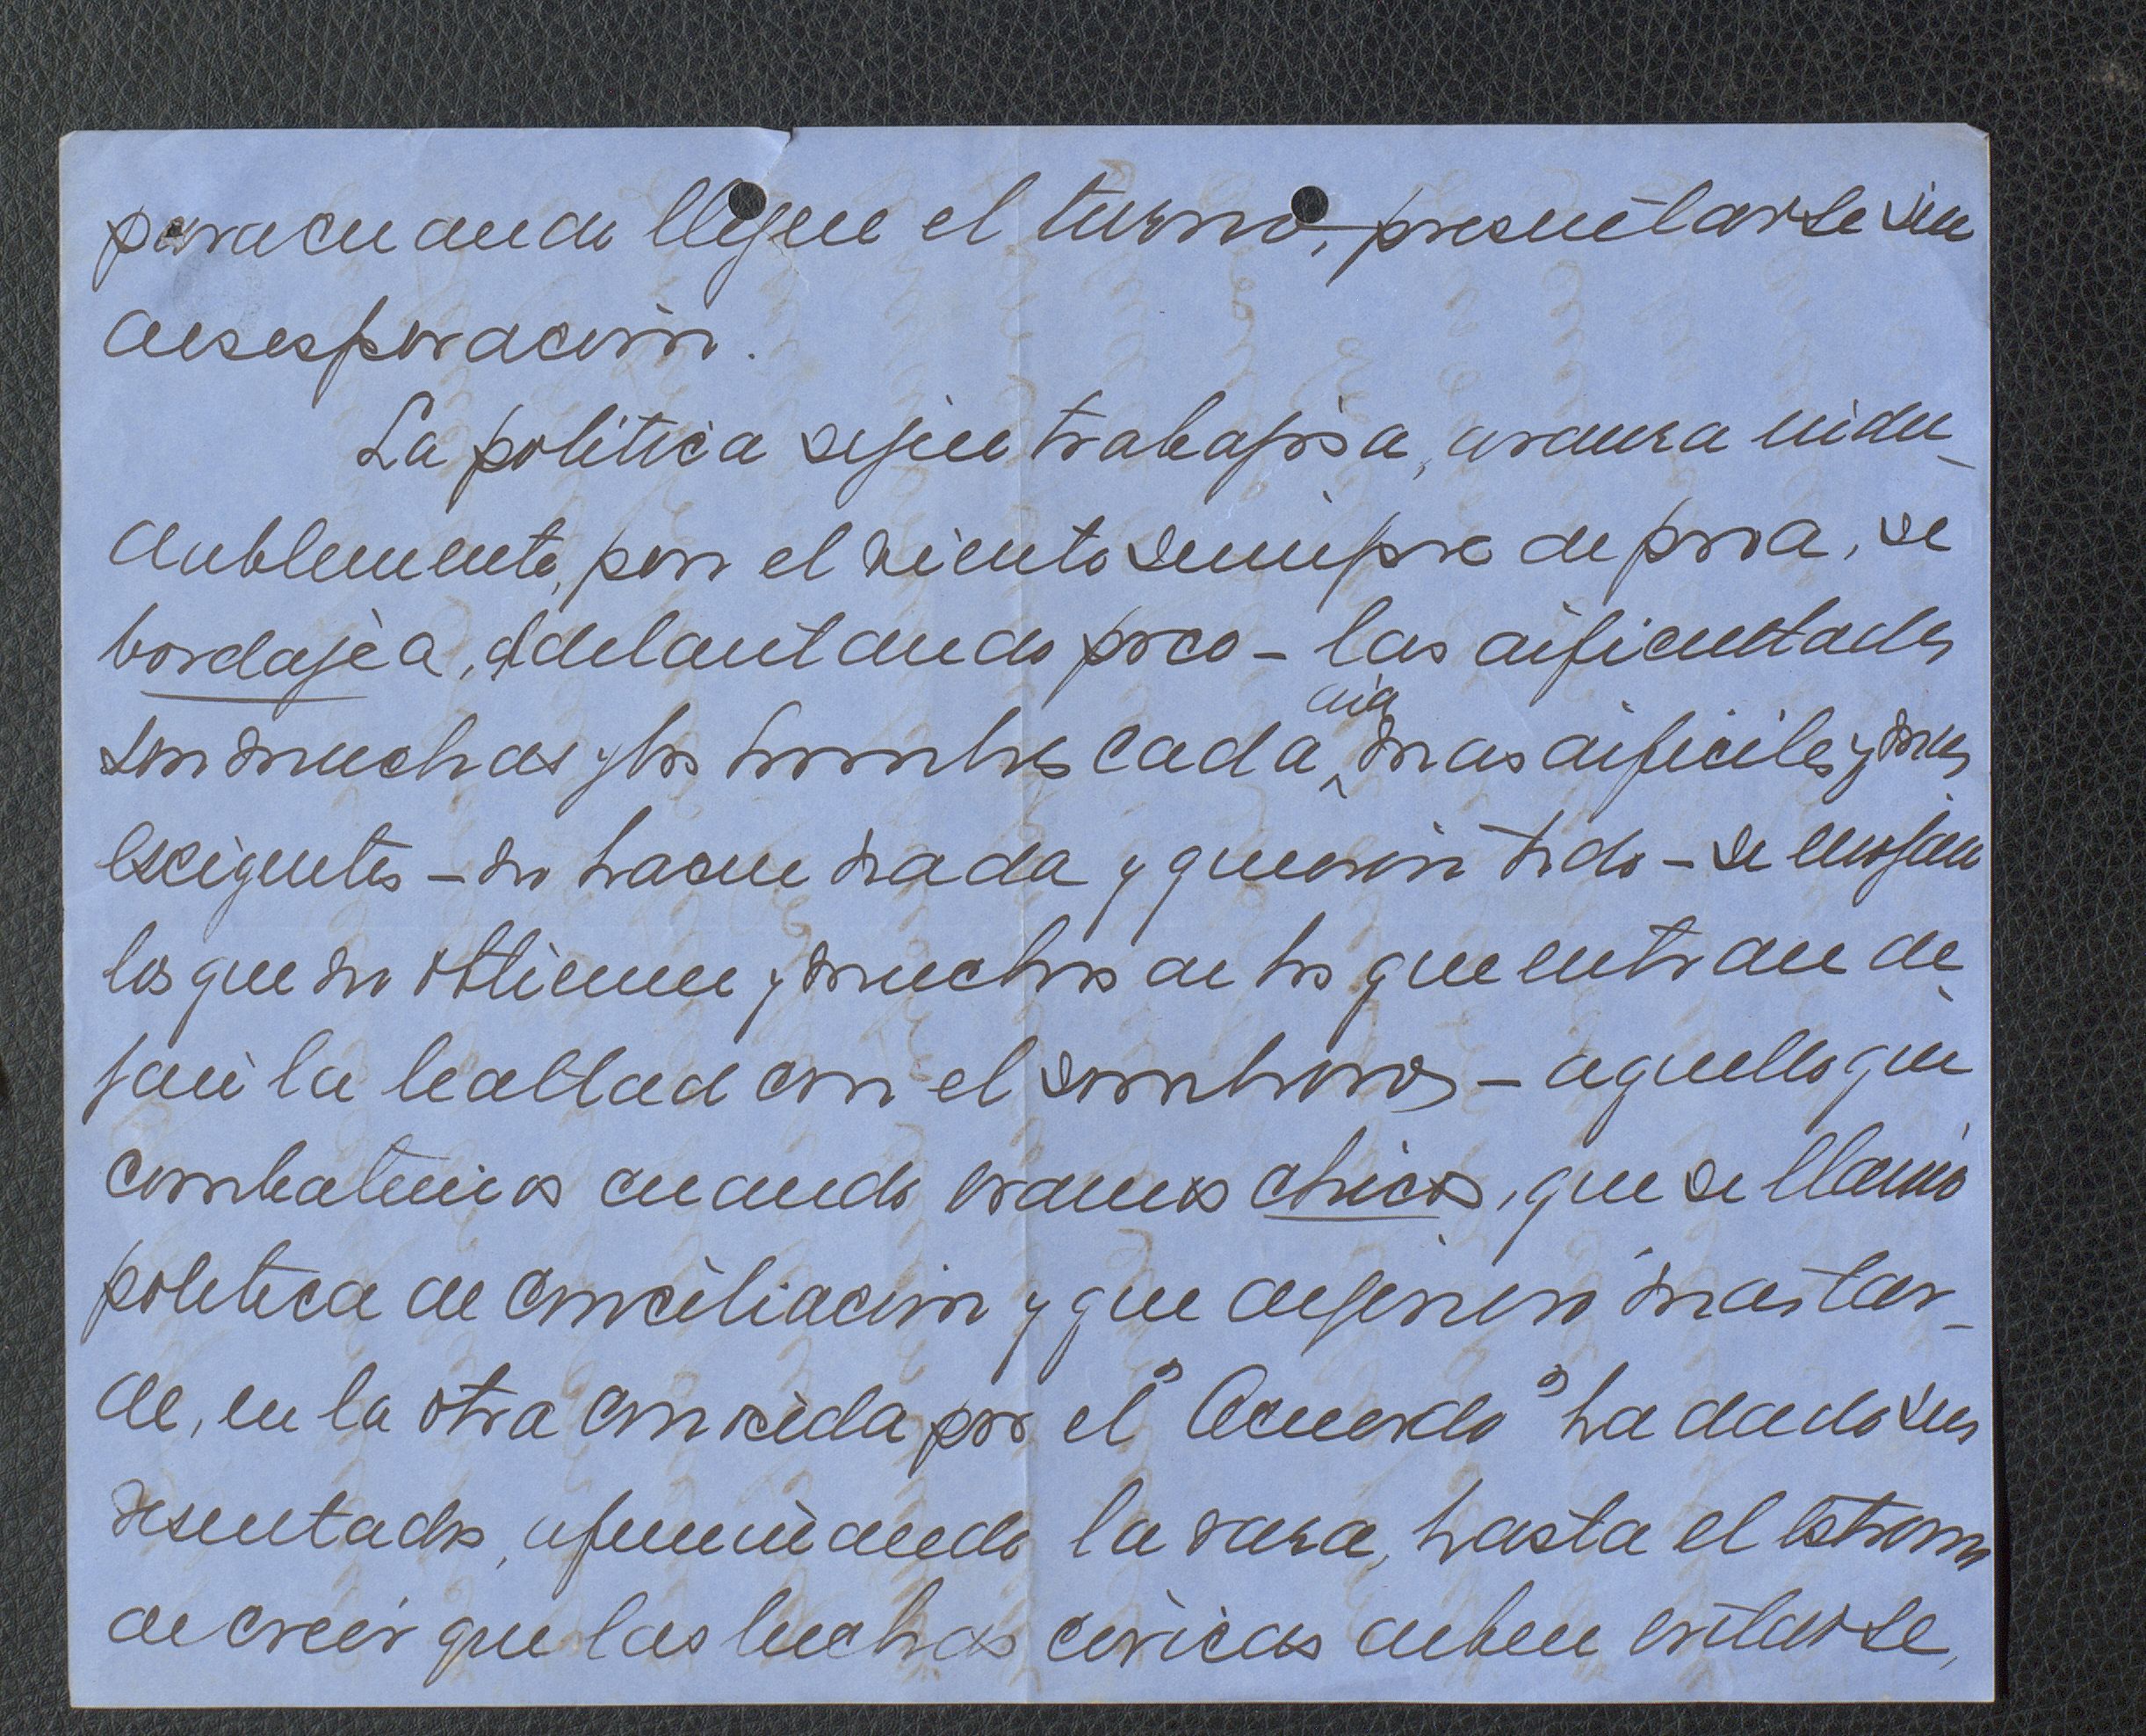 para cuando llegue el turno, presentarse sin
desesperacion.
La politica sigue trabajosa, avanza indu-
dablemente, pero el viento siempre de proa, se
bordajea, adelantando poco - las dificultades
son muchas y los hombres cada dia mas dificiles y mas
escigentes - no hacen nada y quieren todo - se enojan
los que no obtienen y muchos de los que entran de-
jan la lealtad con el sombrero - aquello que
combatimos cuando eramos chicos, que se llamó
politica de conciliacion y que degeneró mas tar-
de, en la otra conocida por el "Acuerdo" ha dado sus
resultados, afeminando la raza, hasta el estremo
de creer que las luchas civicas deben evitarse,